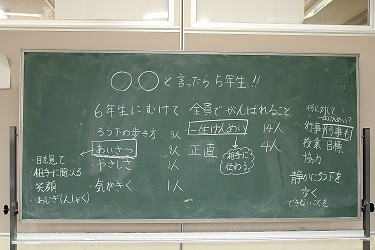 ○○と言ったら5年生!!
6年生にむけて 全員でがんばれること
ろうかの歩き方 3人
あいさつ 9人
やさしさ 1人
気がきく 1人
一生けんめい 14人
正直 4人
相手に
伝わる
・目を見て
・相手に聞こえる
・笑顔
・おじぎ(えしゃく)
何に対して
行事 何事も
授業 目標
協力
静かにろう下を
歩く
できないことを